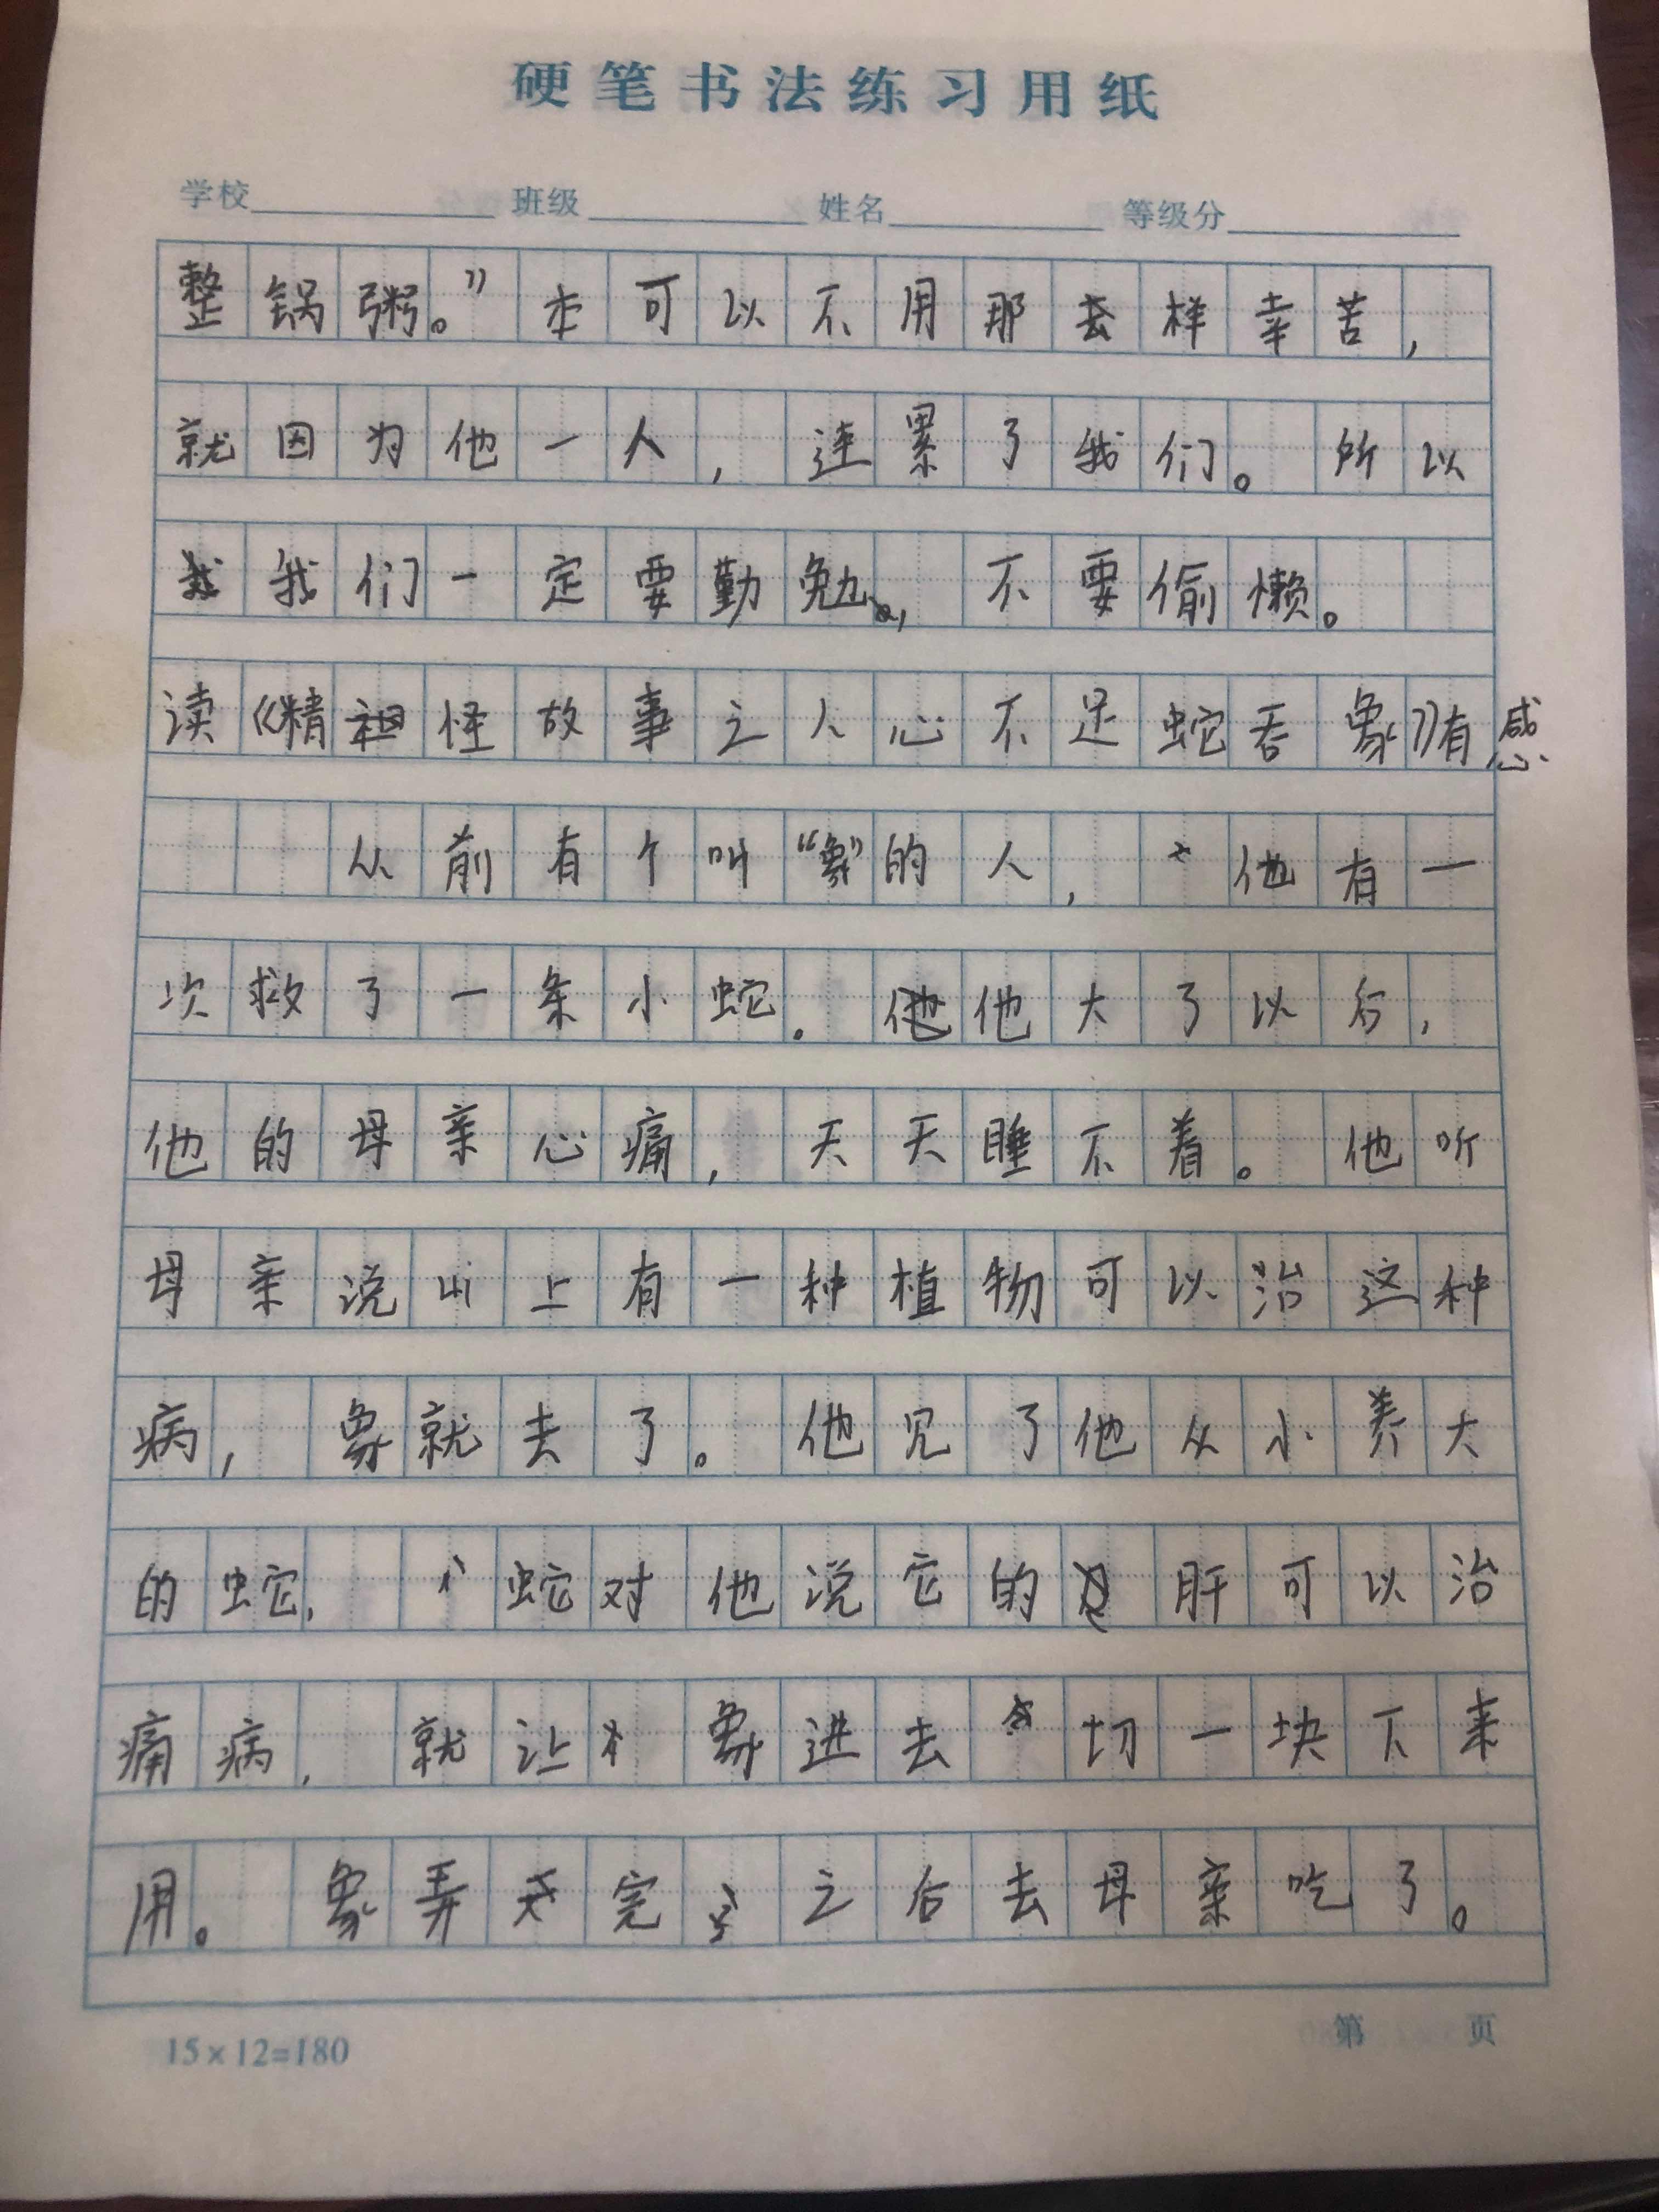 硬笔书法练习用纸
学校 班级 姓名 等级分
整锅粥。”本可以不用那去样幸苦，
就因为他一人，连累了我们。所以
我我们一定要勤勉，不要偷懒。
读《精祖怪故事之人心不足蛇吞象》有感
从前有个叫“象”的人，他有一
次救了一条小蛇。他他大了以后，
他的母亲心痛，天天睡不着。他听
母亲说山上有一种植物可以治这种
病，象就去了。他见了他从小养大
的蛇，蛇对他说它的肝可以治
痛病，就让象进去切一块下来
用。象弄完之后去母亲吃了。
15×12=180
第 页